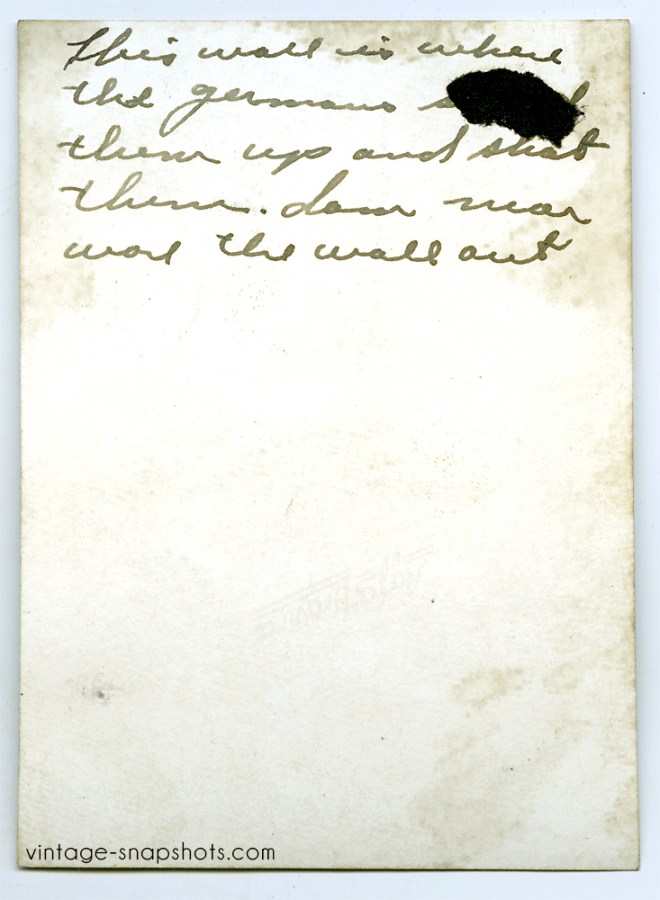 This wall is where
the germans
them up and shot
them. dam near
wore the wall out
vintage-snapshots.com